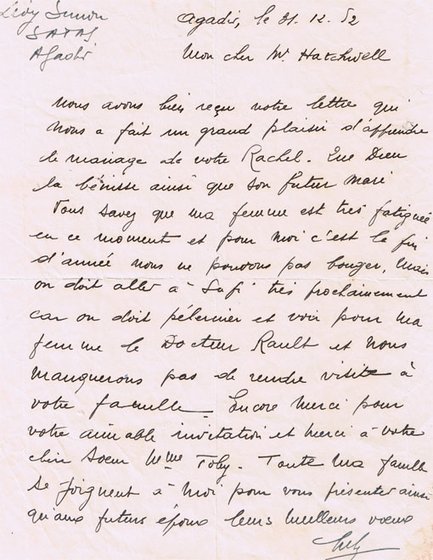 Lévy Simon
SATAS
Agadir
Agadir, le 31.12.52
Mon cher Mr Hatchwell
Nous avons bien reçu votre lettre qui
nous a fait un grand plaisir d'apprendre
le mariage de votre Rachel. Que Dieu
la bénisse ainsi que son futur mari
Vous savez que ma femme est très fatiguée
en ce moment et pour moi c'est la fin
d'année nous ne pouvons pas bouger, mais
on doit aller à Safi très prochainement
car on doit pélerinér et voir pour ma
femme le Docteur Rault et nous
manquerons pas de rendre visite à
votre famille. Encore merci pour
votre aimable invitation et merci à votre
chère Soeur Mme Toby. Toute ma famille
se joignent à moi pour vous présenter ainsi
qu'aux futurs époux leurs meilleurs voeux